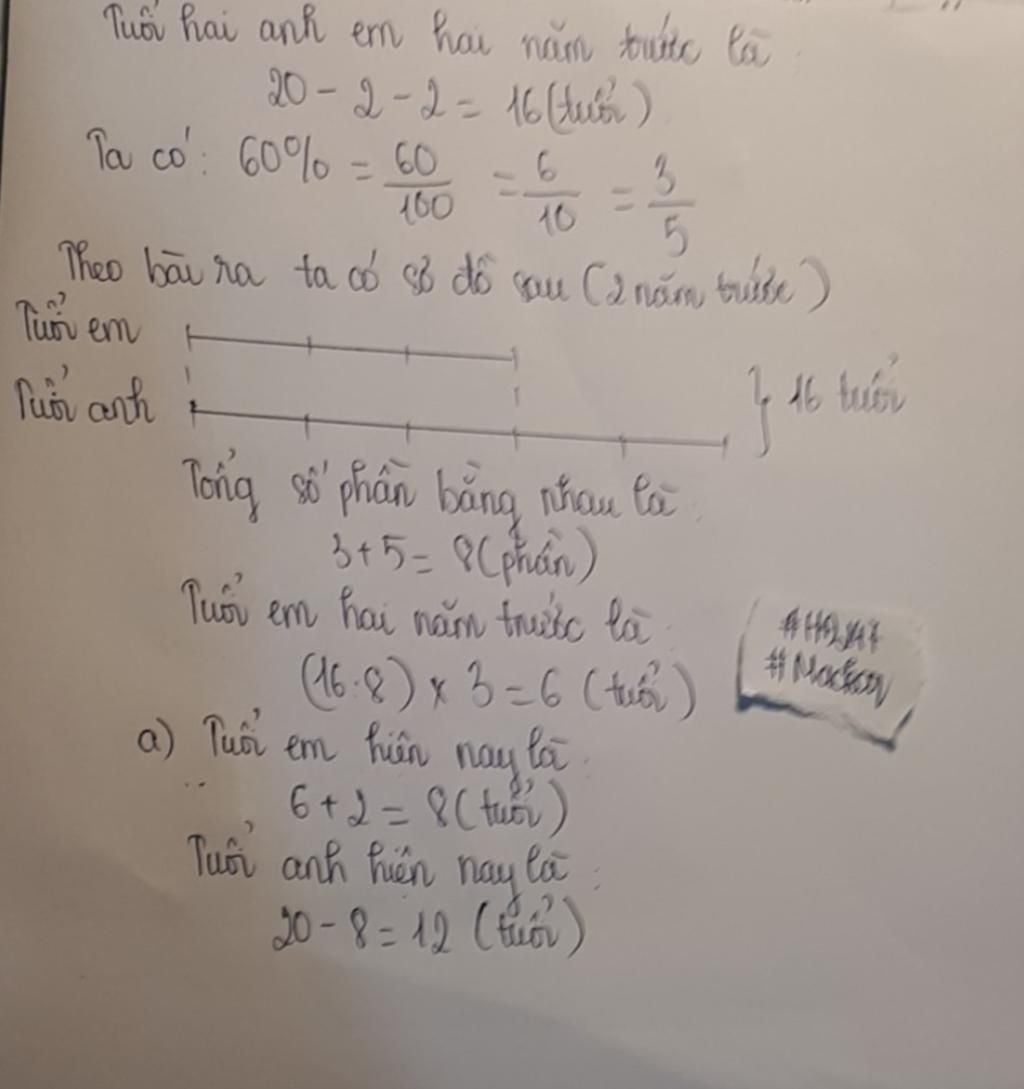 Tuổi hai anh em hai năm trước là
20 - 2 - 2 = 16 (tuổi)
Ta có: 60% = 60/100 = 6/10 = 3/5
Theo bài ra ta có sơ đồ sau (2 năm trước)
Tuổi em
Tuổi anh
} 16 tuổi
Tổng số phần bằng nhau là:
3 + 5 = 8 (phần)
Tuổi em hai năm trước là
(16:8) x 3 = 6 (tuổi)
a) Tuổi em hiện nay là:
6 + 2 = 8 (tuổi)
Tuổi anh hiện nay là:
20 - 8 = 12 (tuổi)